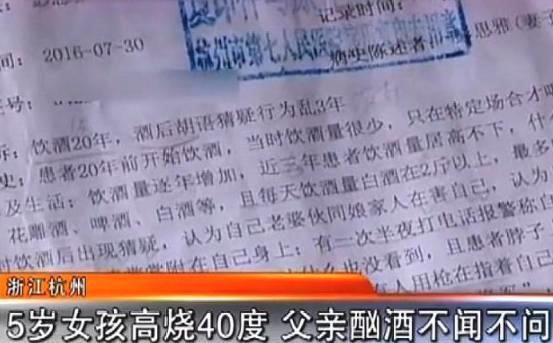 记录时间:
间: 2016-07-30
杭州市第七人民医院
病史陈述者
思雅(妻子
号:
诉: 饮酒20年,酒后胡语猜疑行为乱3年
史: 患者20年前开始饮酒,当时饮酒量很少,只在特定场合才
及生活; 饮酒量逐年增加,近三年患者饮酒量居高不下,什
花雕酒、啤酒、白酒等,且每天饮酒量白酒在2斤以上,最多
时饮酒后出现猜疑,认为自己老婆伙同娘家人在害自己,认为
附在自己身上; 有一次半夜打电话报警称自
什么也没看到,且患者脖子
有人用枪在指着自己
浙江杭州
5岁女孩高烧40度 父亲酗酒不闻不问